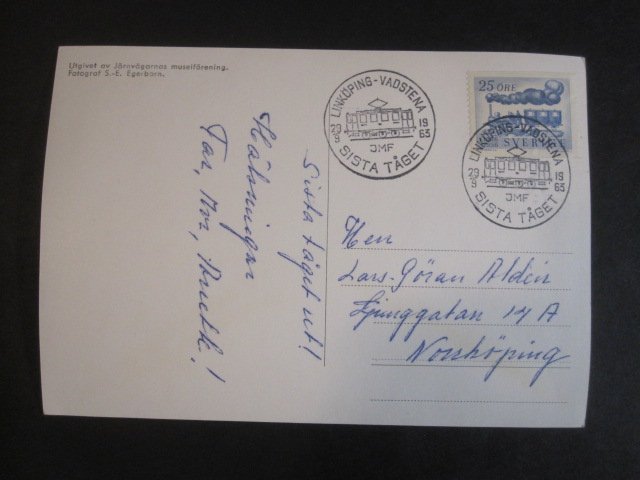 Utgivet av Järnvägarnas museiförening.
Fotograf S.-E. Egerborn.
LINKÖPING-VADSTENA
29 19
9 63
JMF
SISTA TÅGET
25 ÖRE
SVERIGE
LINKÖPING-VADSTENA
29 19
9 63
JMF
SISTA TÅGET
Sista tåget ut!
Hälsningar
Far, Mor,
Herr
Lars-Göran Aldén
Ljunggatan 14 A
Norrköping